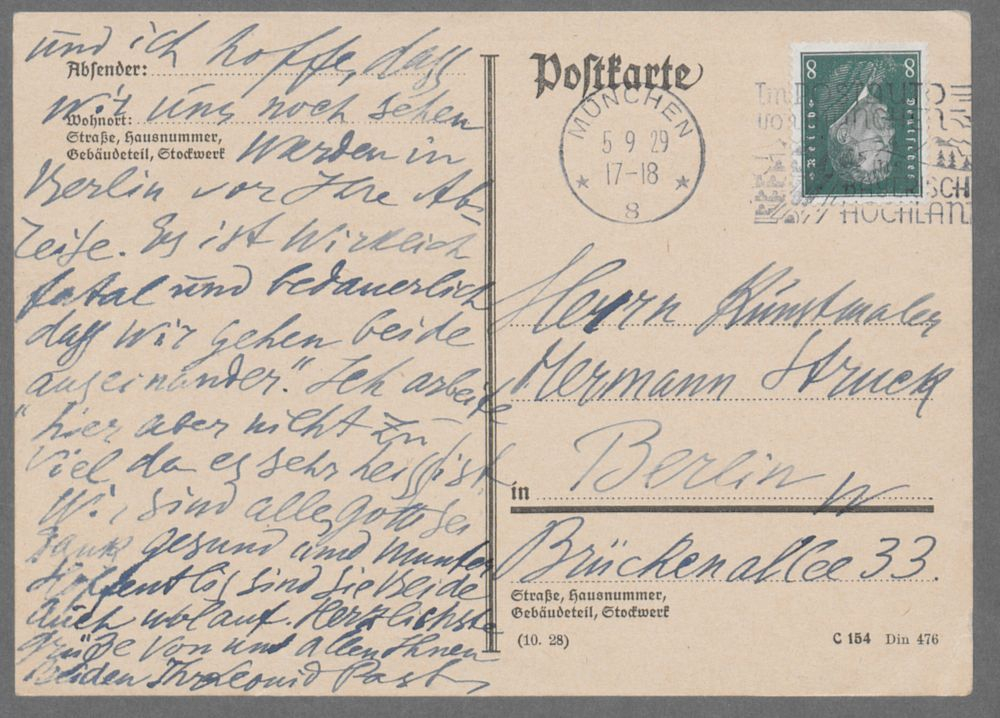 und ich hoffe, dass
Absender:
wir uns noch sehen
Wohnort:
Straße, Hausnummer,
Gebäudeteil, Stockwerk
werden in
Berlin vor Ihre Ab-
reise. Es ist wirklich
fatal und bedauerlich
dass wir gehen beide
"auseinander". Ich arbeite
hier aber nicht zu
viel da es sehr heiss ist
Wir sind alle, gott sei
dank gesund und munter
Hoffentlig sind Sie beide
auch wolauf. Herzlichste
grüße von uns allen Ihnen
beiden Ihr Leonid Past
Postkarte
MÜNCHEN
5 9 29
17-18
8
8 8
Deutsches Reich
Im POSTAUTO
von MÜNCHEN
BAYERISCH
HOCHLAN
Herrn Kunstmaler
Hermann Struck
in Berlin W
Brückenallee 33.
Straße, Hausnummer,
Gebäudeteil, Stockwerk
(10. 28)
C 154 Din 476